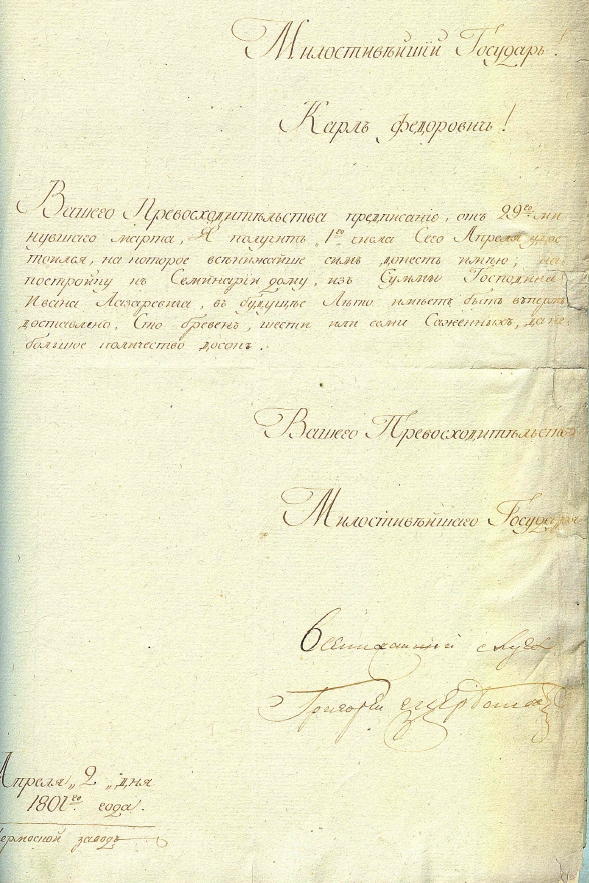 Милостивѣйшій Государь!
Карлъ Федоровичь!
Вашего Превосходительства предписаніе, отъ 29го ми
нувшаго марта, Я получить 1го числа Сего Апреля удос
тоился, на которое всѣнижайше симъ донесть имѣю; на
постройку къ Семинаріи дому, изъ Суммы Господина
Ивана Лазаревича, въ будущѣе Лѣто имѣетъ быть въ Пермь
доставлено, Сто бревенъ, шести или семи Саженныхъ, да не
большое количество досокъ.
Вашего Превосходительства
Милостивѣйшаго Государя
Всенижайшій слуга
Григорей
Апреля „2„ дня
1801го года.
Чермоской заводъ